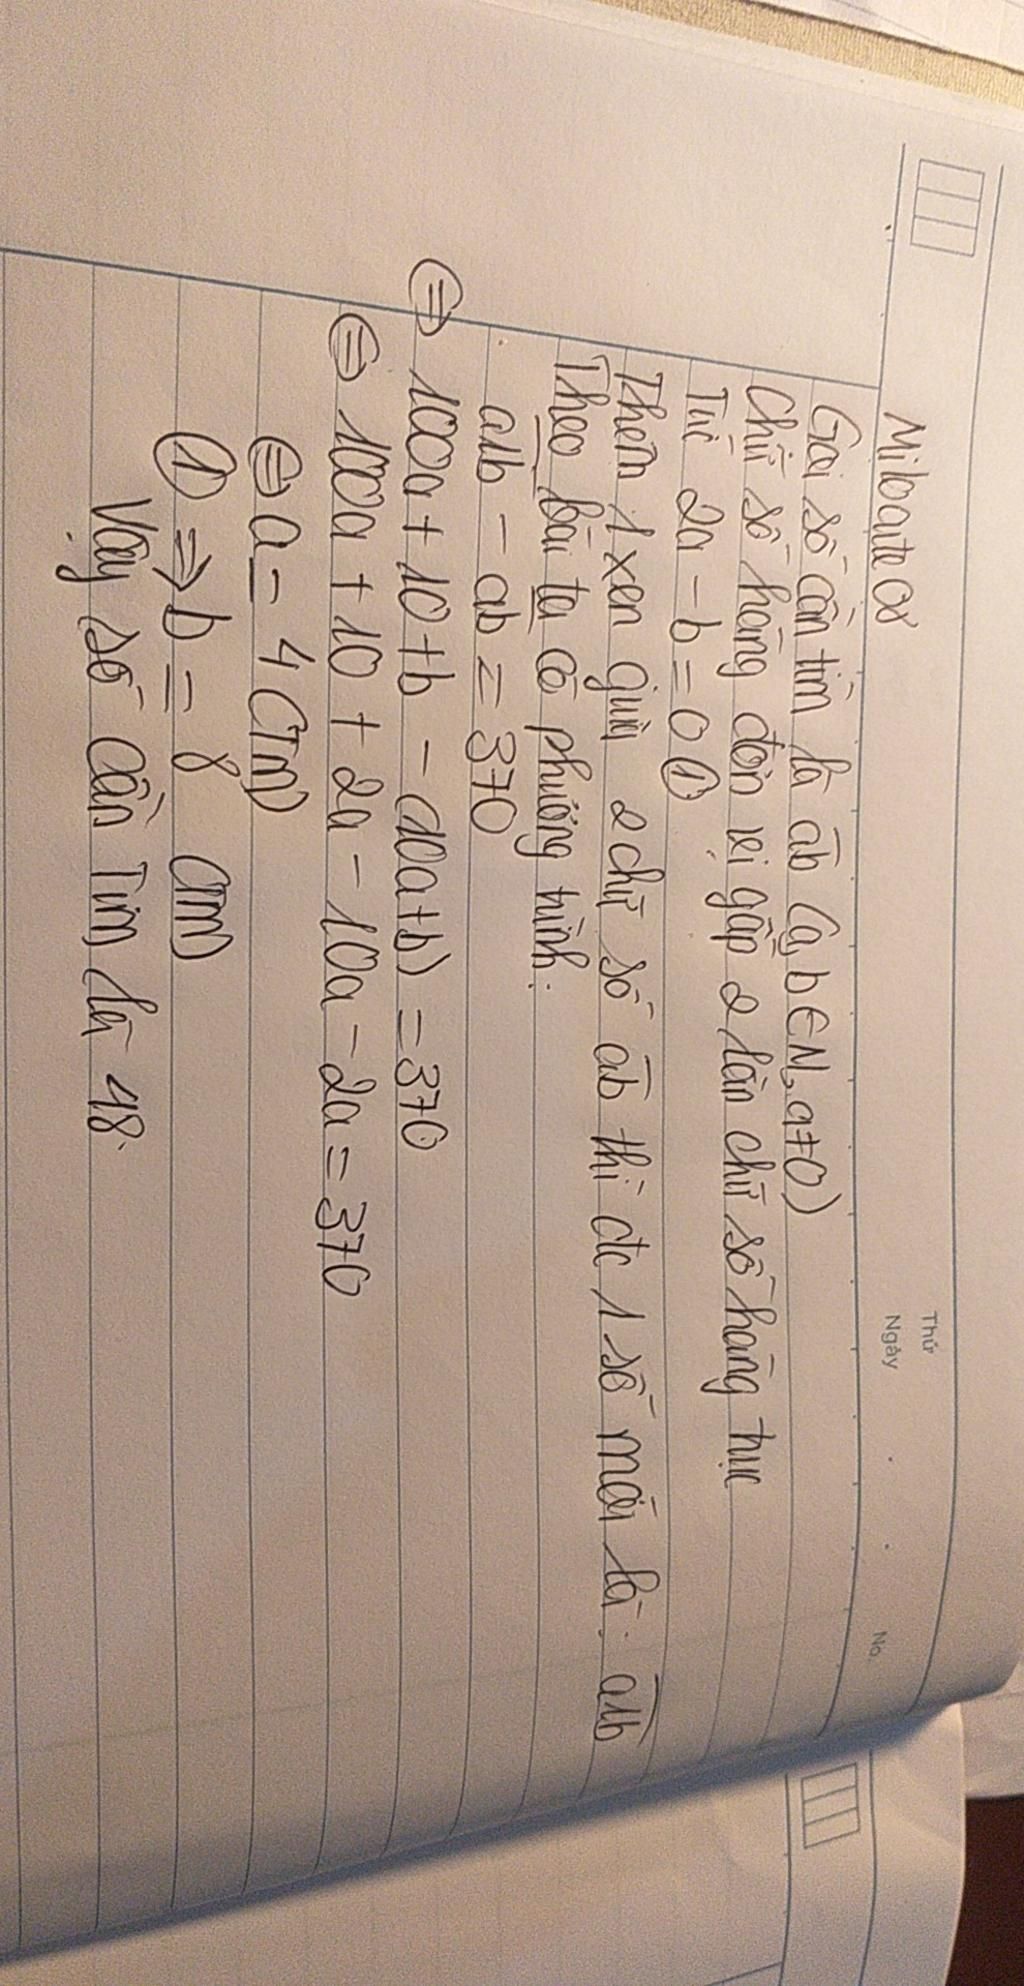 Thứ
Ngày
No.
Gọi số cần tìm là ab (a, b ∈ N, a ≠ 0)
Chữ số hàng đơn vị gấp 2 lần chữ số hàng trục
Tức 2a - b = 0 ①
Thêm 1 xen giữa 2 chữ số ab thì đc 1 số mới là: a1b
Theo bài ta có phương trình:
a1b - ab = 370
⇔ 100a + 10 + b - (10a + b) = 370
⇔ 100a + 10 + 2a - 10a - 2a = 370
⇔ a = 4 (TM)
① ⇒ b = 8 (TM)
Vậy số cần tìm là 48.